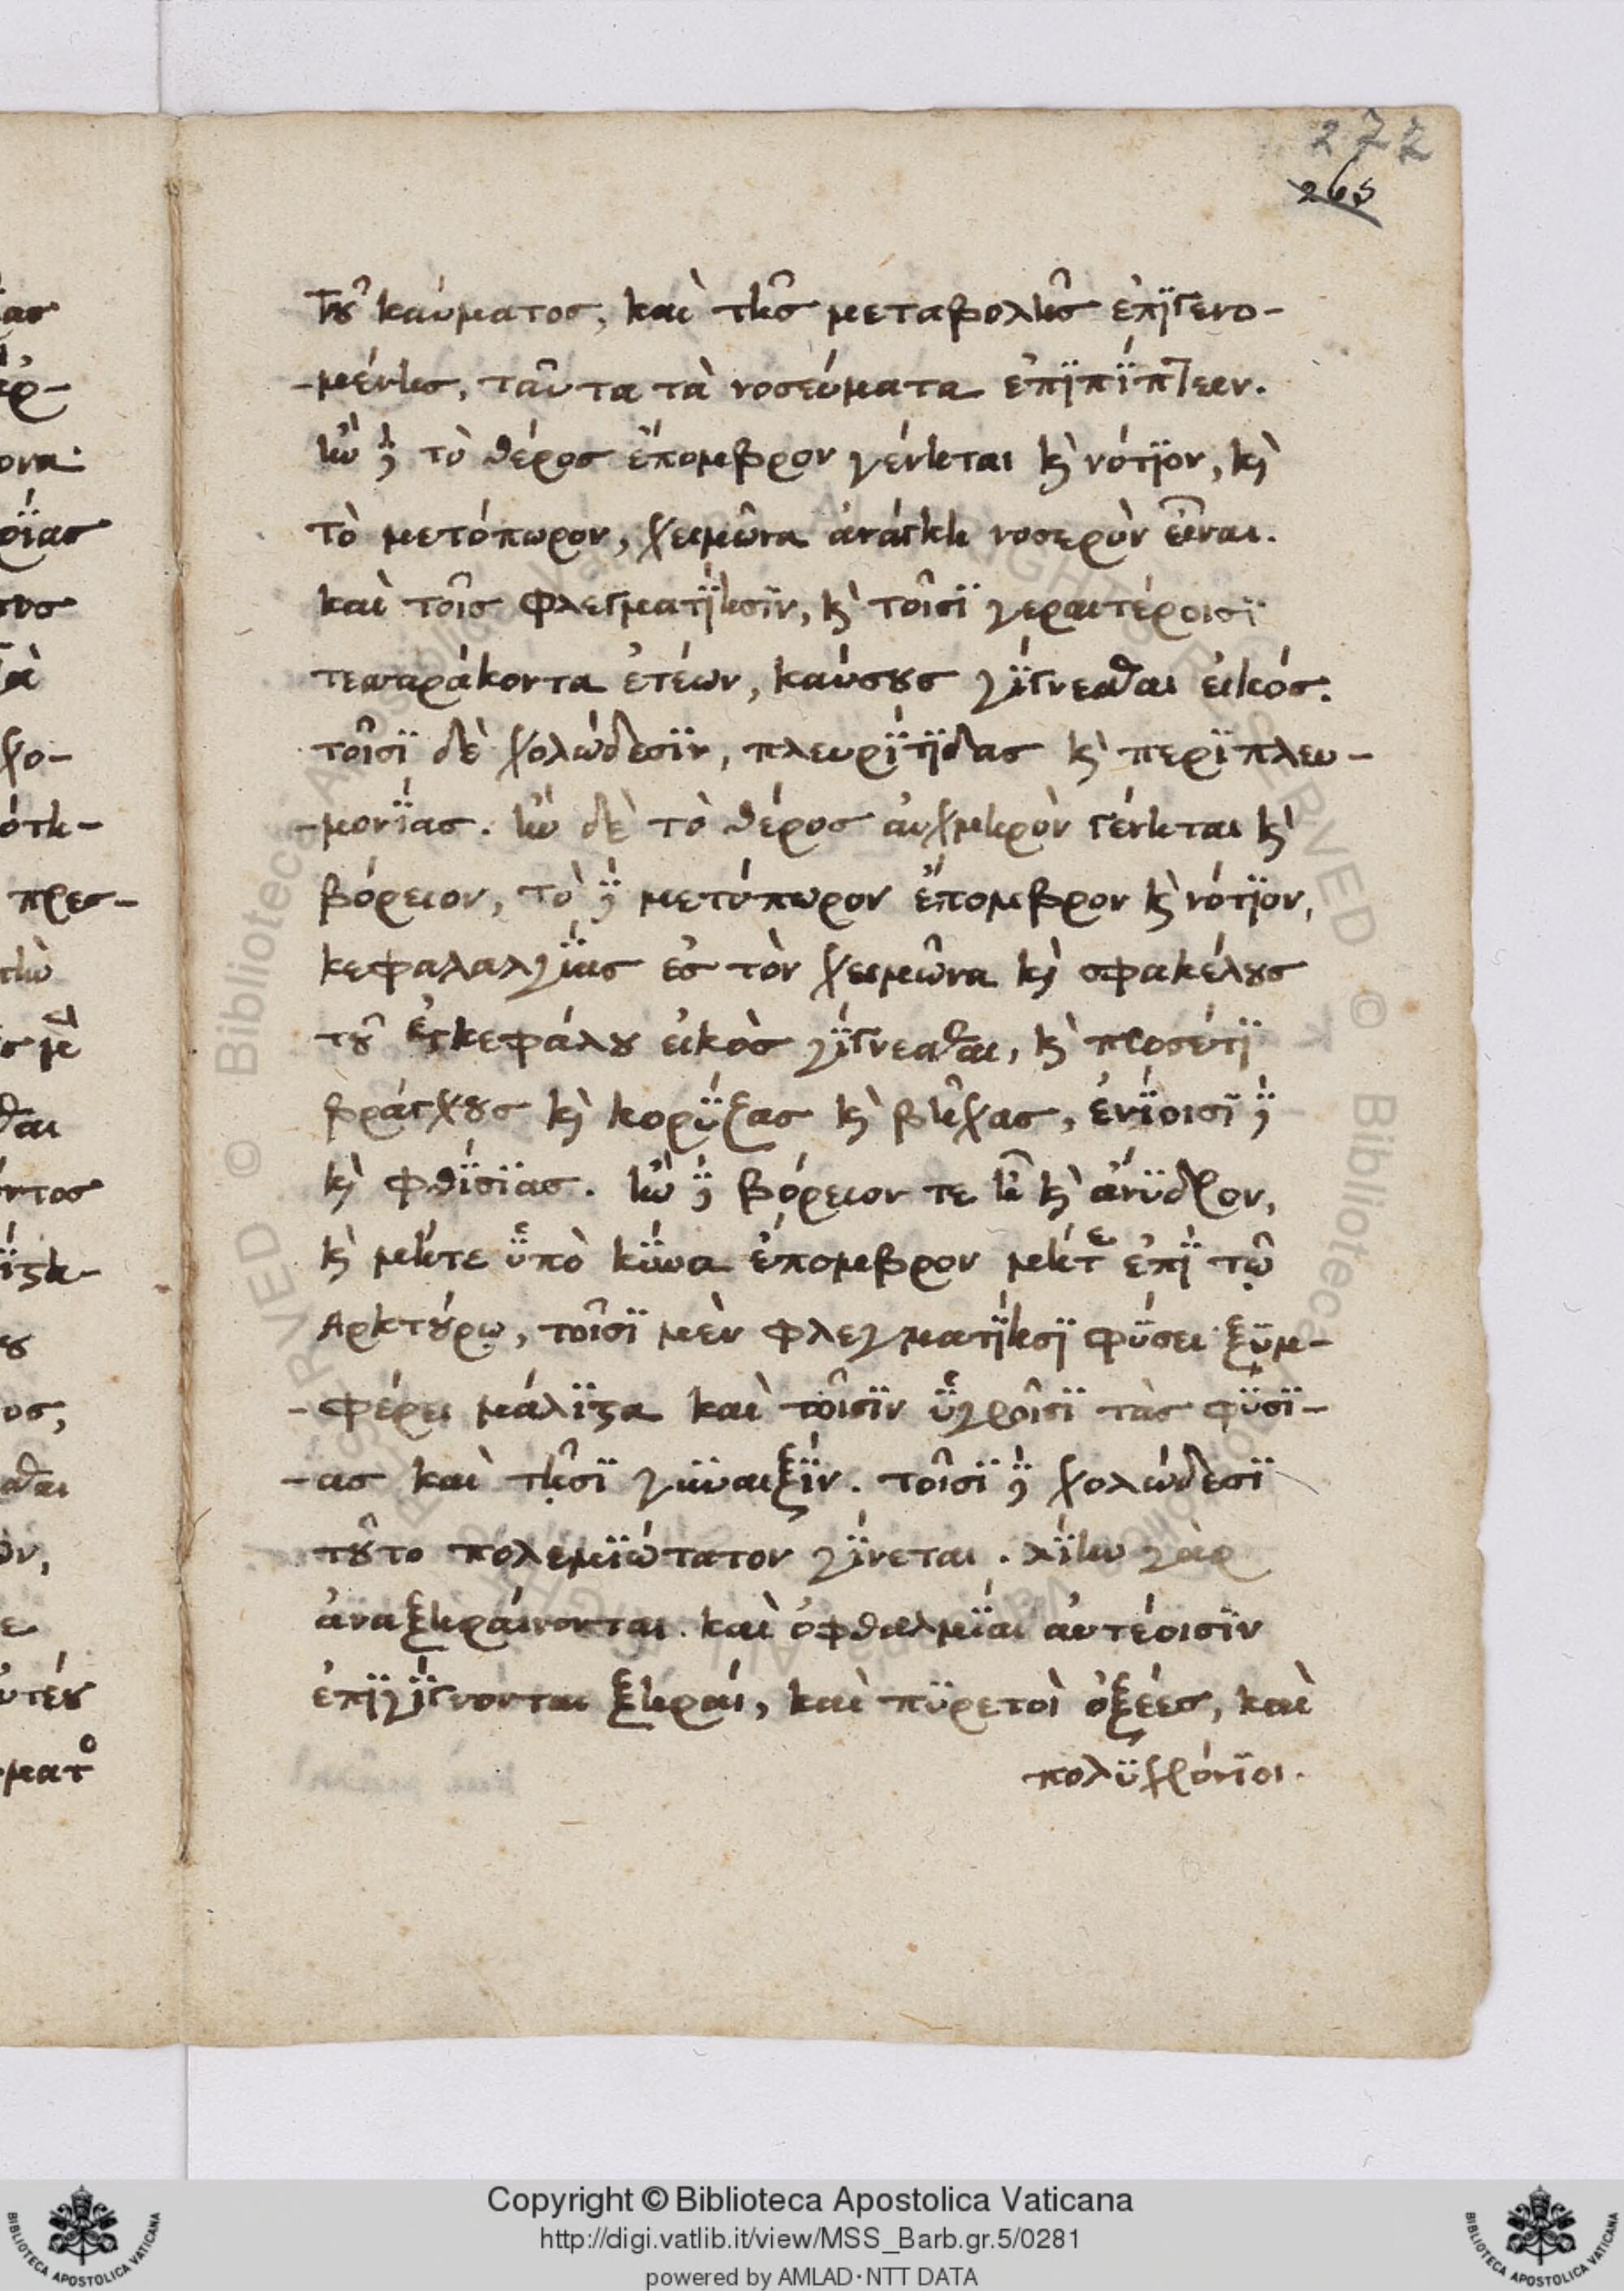 277
265
τοῦ καύματος, καὶ τῆς μεταβολῆς ἐπϊγενο-
-μένης, ταῦτα τὰ νοσεύματα ἐπϊπΐπτειν.
ἢν δὲ τὸ θέρος ἔπομβρον γένηται κὶ νότϊον, κὶ
τὸ μετόπωρον, χειμῶνα ἀνάγκη νοσερὸν εἶναι.
καὶ τοῖς φλεγματΐησϊν, κὶ τοῖσϊ γεραιτέροισϊ
τεσσαράκοντα ἐτέων, καύσους γΐγνεσθαι εἰκός.
τοῖσϊ δὲ χολώδεσϊν, πλευρΐτϊδας κὶ περϊπλευ-
-μονΐας. ἢν δὲ τὸ θέρος αὐχμηρὸν γένηται κὶ
βόρειον, τὸ δὲ μετόπωρον ἔπομβρον κὶ νότϊον,
κεφαλαλγΐας ἐς τὸν χειμῶνα κὶ σφακέλους
τοῦ ἐγκεφάλου εἰκὸς γΐγνεσθαι, κὶ προσέτϊ
βράγχους κὶ κορΰζας κὶ βῆχας, ἐνΐοισϊ δὲ
κὶ φθΐσϊας. ἢν δὲ βόρειον τε ἦ κὶ ἄνϋδρον,
κὶ μήτε ϋπὸ κΰνα ἔπομβρον μήτε ἐπϊ τῷ
Αρκτούρῳ, τοῖσϊ μὲν φλεγματΐησϊ φΰσει ξϋμ-
-φέρει μάλϊϛα καὶ τοῖσϊν ϋγροῖσϊ τὰς φΰσϊ-
-ας καὶ τῇσϊ γϋναιξΐν. τοῖσϊ δὲ χολώδεσϊ
τοῦτο πολεμϊώτατον γΐνεται. λΐην γὰρ
ἀναξηραίνονται. καὶ ὀφθαλμΐαι αὐτέοισϊν
ἐπϊγΐγνονται ξηραί, καὶ πϋρετοὶ ὀξέες, καὶ
πολϋχρόνϊοι.
Copyright © Biblioteca Apostolica Vaticana
http://digi.vatlib.it/view/MSS_Barb.gr.5/0281
powered by AMLAD·NTT DATA